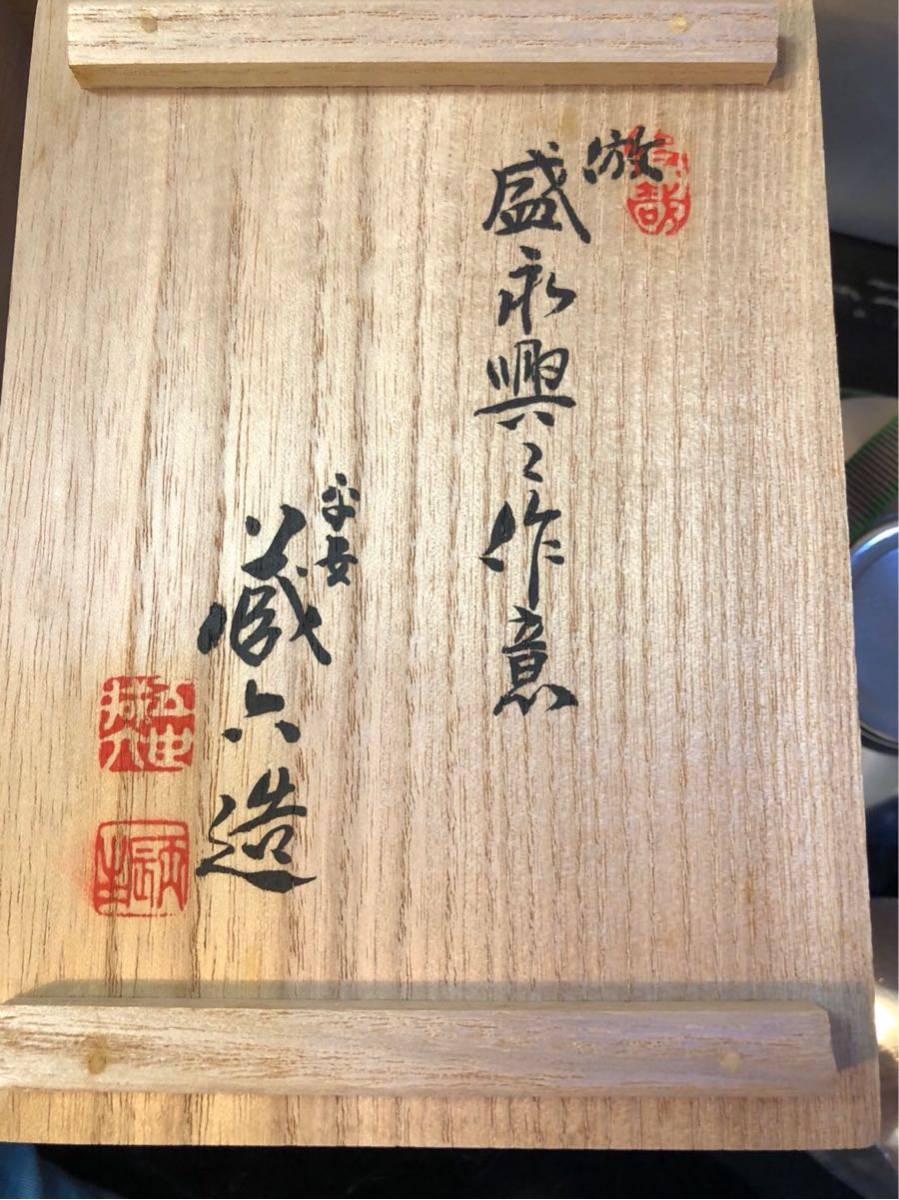 倣
盛永興々作意
平安
蔵六造